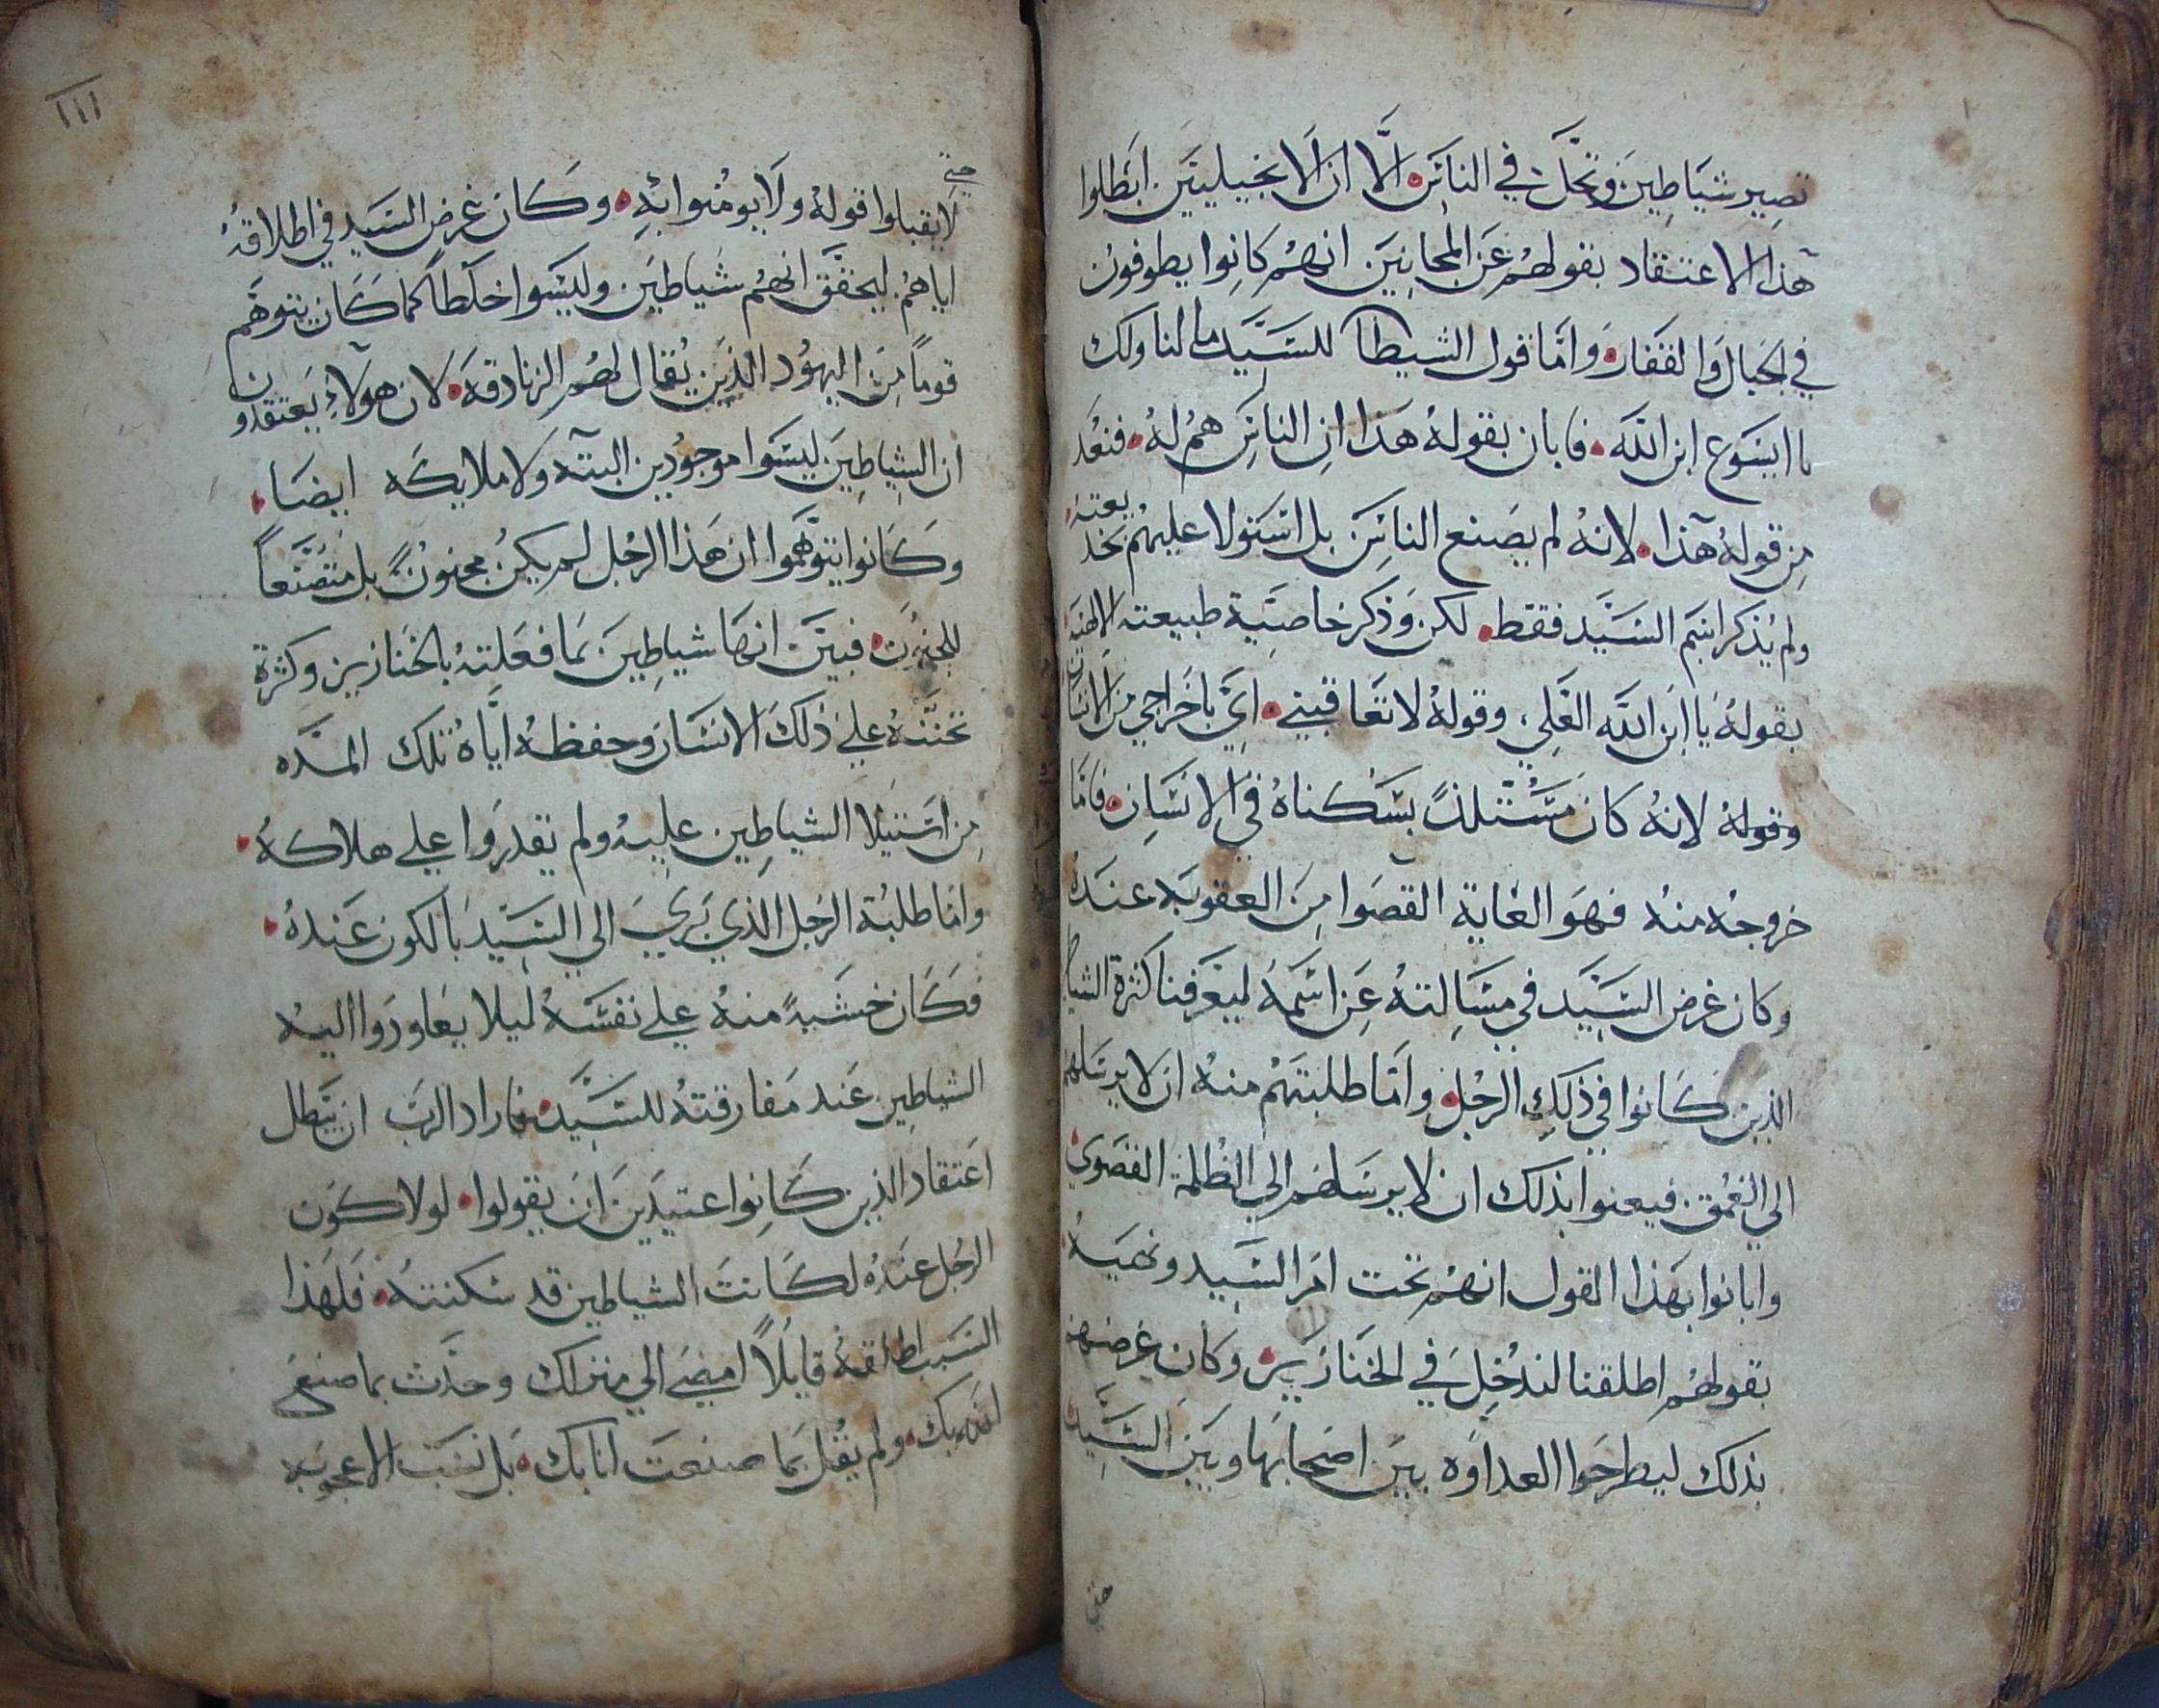 تصير شياطين وتحل في الناس الا ان الانجيليين ابطلوا
هذا الاعتقاد بقولهم عن المجانين انهم كانوا يطوفون
في الجبال والقفار واما قول الشيطان للسيد ما لنا ولك
يا ايسوع ابن الله فابان بقوله هذا ان الناس هم له فنعد
من قوله هذا لانه لم يصنع الناس بل استولا عليهم بخديعته
ولم يذكر اسم السيد فقط لكن وذكر خاصية طبيعته الالهية
بقوله يا ابن الله العلي وقوله لا تعاقبني اي باخراجي من الانسان
وقوله لانه كان مستلذ بسكناه في الانسان فاما
خروجه منه فهو الغاية القصوا من العقوبه عنده
وكان غرض السيد في مسالته عن اسمه ليعرفنا كثرة الشياطين
الذين كانوا في ذلك الرجل واما طلبتهم منه ان لا يرسلهم
الي العمق فيعنوا بذلك ان لا يرسلهم الي الظلمة القصوي
وابانوا بهذا القول انهم تحت امر السيد ونهيه
بقولهم اطلقنا لندخل في الخنازير وكان غرضهم
بذلك ليطرحوا العداوه بين اصحابها وبين السيد
حتي
١١١
حتي
لا يقبلوا قوله ولا يومنوا به وكان غرض السيد في اطلاقه
اياهم ليحقق انهم شياطين وليسوا خلطا كما كان يتوهم
قوما من اليهود الذين يقال لهم الزنادقة لان هولاء يعتقدون
ان الشياطين ليسوا موجودين البته ولا ملايكه ايضا
وكانوا يتوهموا ان هذا الرجل لم يكن مجنون بل متصنعا
للجنون فبين انها شياطين بما فعلته بالخنازير وكثرة
تحننه علي ذلك الانسان وحفظه اياه تلك المده
من استيلا الشياطين عليه ولم يقدروا علي هلاكه
واما طلبة الرجل الذي بري الي السيد بالكون عنده
فكان خشية منه علي نفسه ليلا يعاودوا اليه
الشياطين عند مفارقته للسيد فاراد الرب ان يبطل
اعتقاد الذين كانوا عتيدين ان يقولوا لولا كون
الرجل عنده لكانت الشياطين قد سكنته فلهذا
السبب اطلقه قايلا امضي الي منزلك وحدث بما صنع
الله بك ولم يقل بما صنعت انا بك بل نسب الاعجوبه